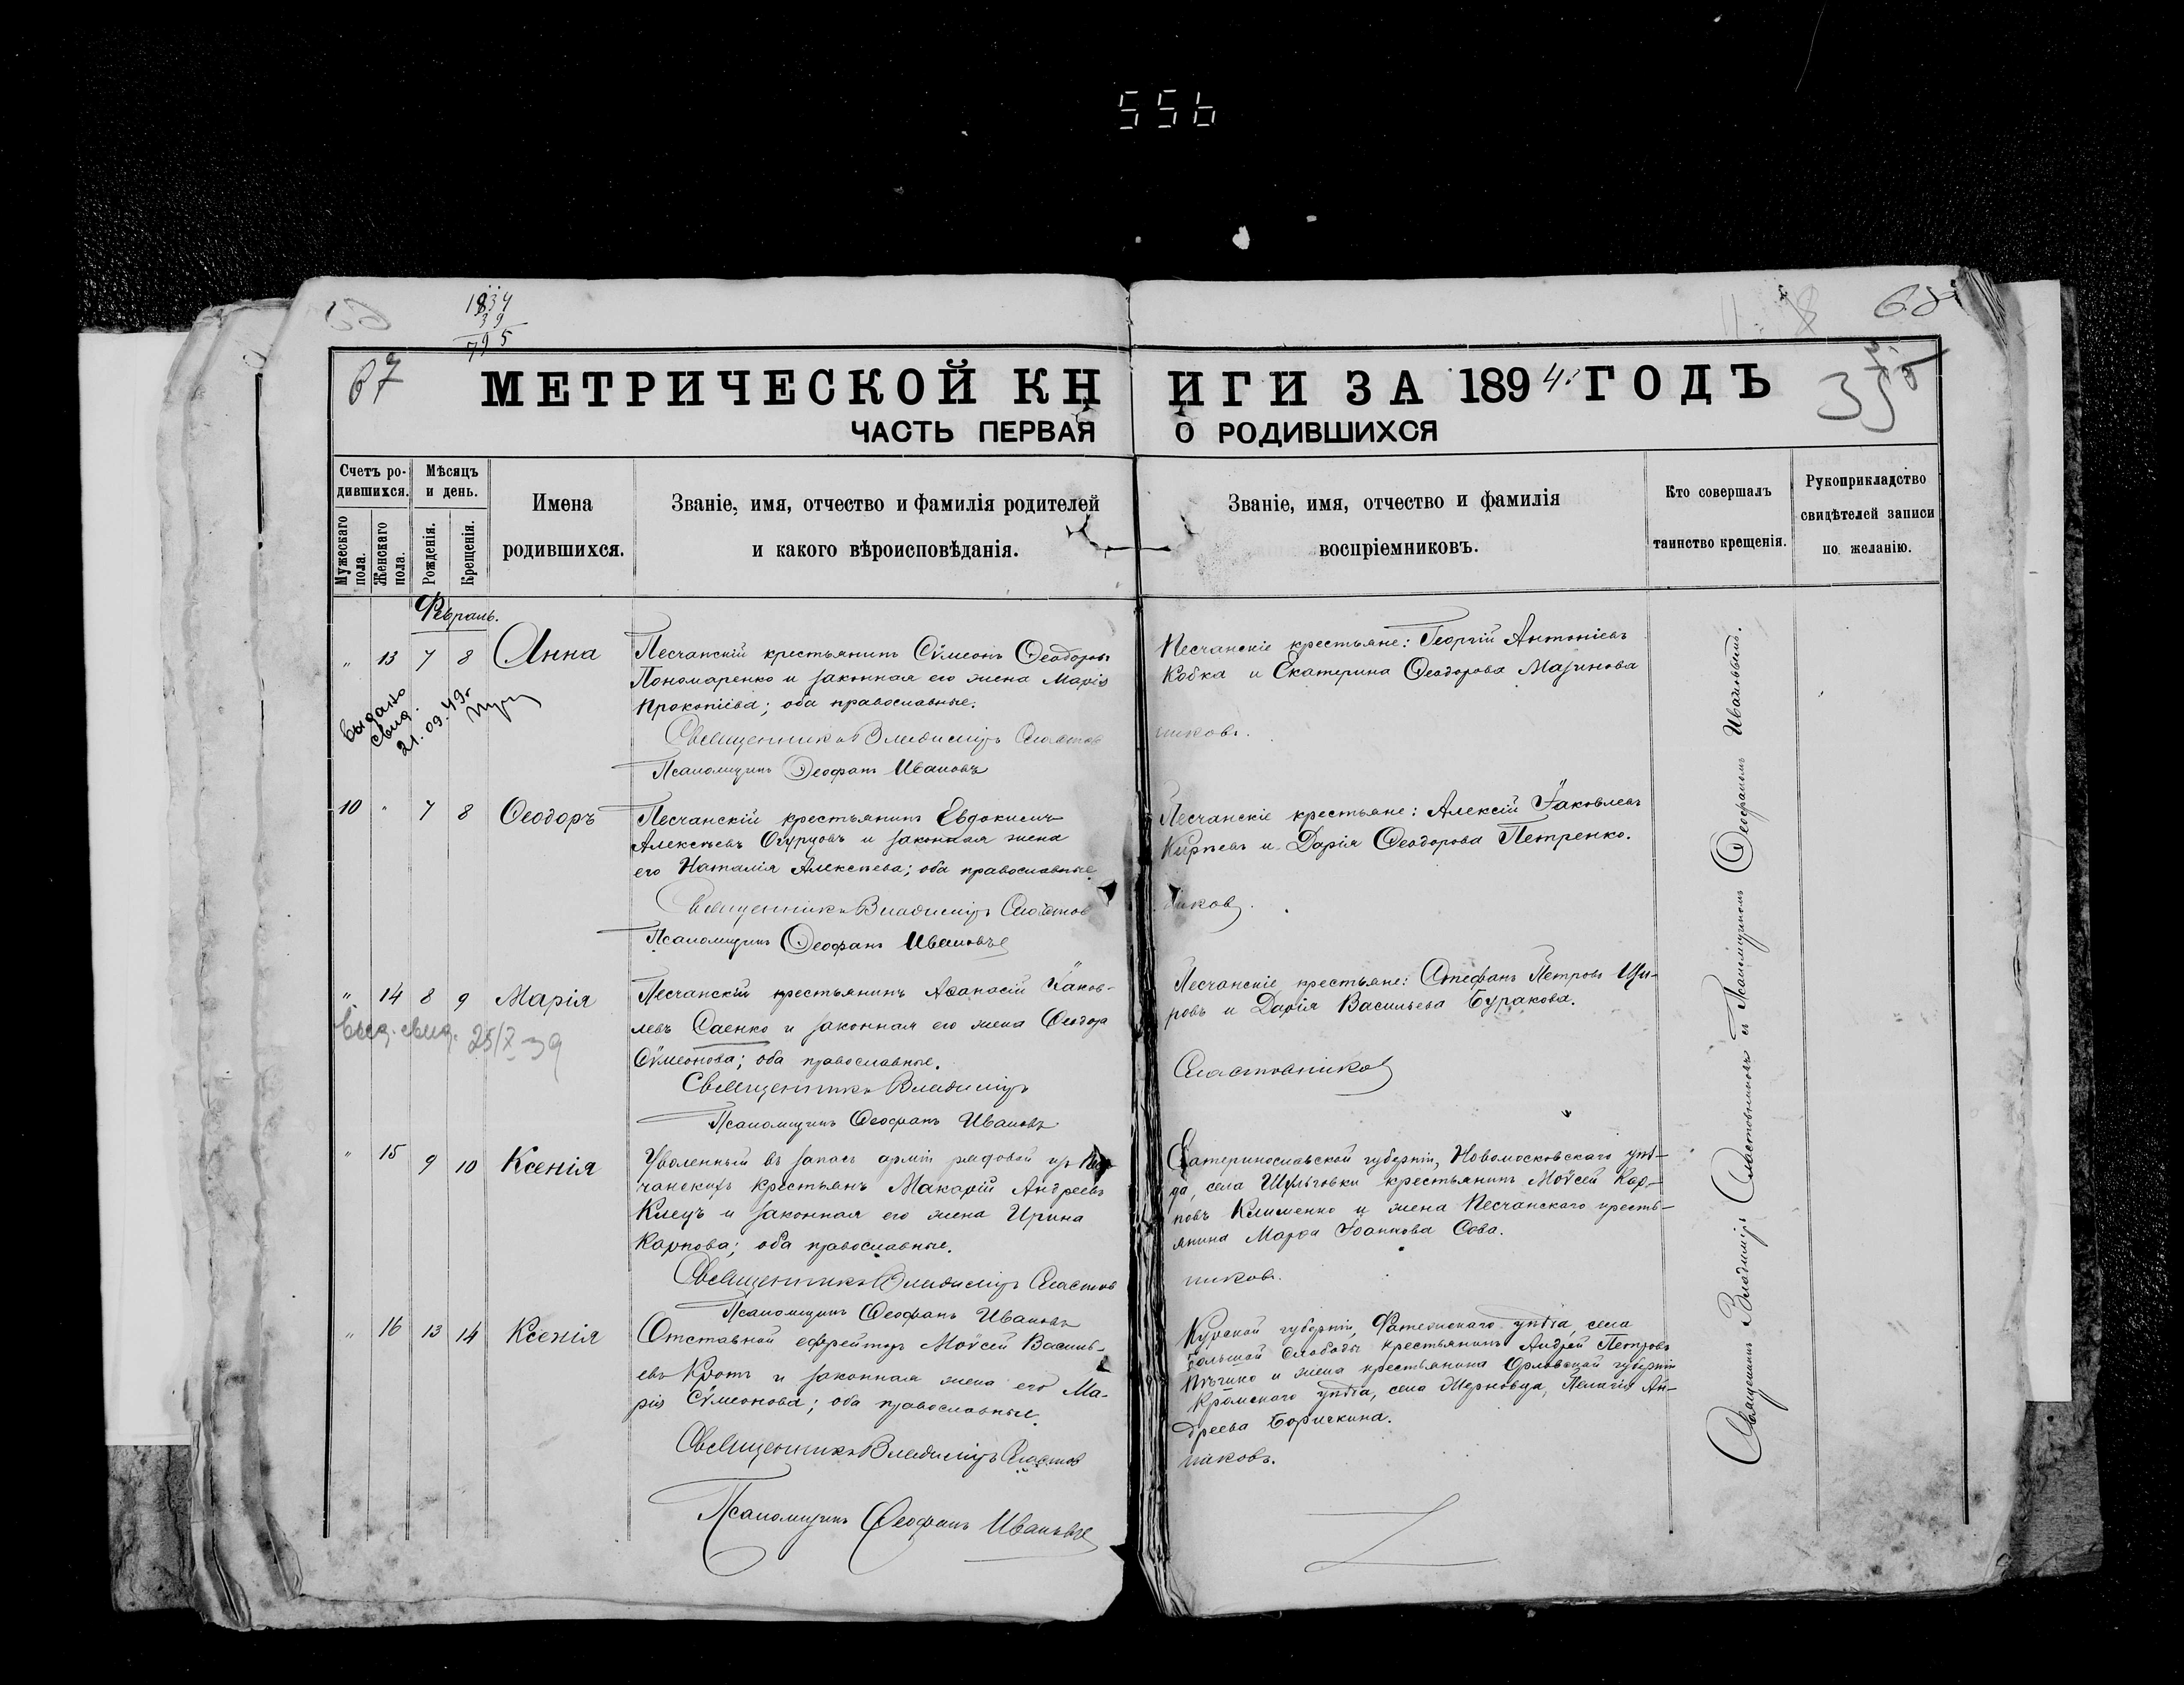 556
1834
39
795
67
МЕТРИЧЕСКОЙ КНИГИ ЗА 1894 ГОДЪ
355
ЧАСТЬ ПЕРВАЯ О РОДИВШИХСЯ
Счетъ родившихся.
Мужескаго пола.
Женскаго пола.
Мѣсяцъ и день.
Рожденія.
Крещенія.
Имена родившихся.
Званіе, имя, отчество и фамилія родителей
и какого вѣроисповѣданія.
Званіе, имя, отчество и фамилія
воспріемниковъ.
Кто совершалъ
таинство крещенія.
Рукоприкладство
свидѣтелей записи
по желанію.
Февраль.
" 13 7 8 Анна
Песчанскій крестьянинъ Сѵмеонъ Ѳеодоровъ
Пономаренко и законная его жена Марія
Прокопіева; оба православные.
Священникъ Владиміръ Сластовниковъ.
Псаломщикъ Ѳеофанъ Ивановъ
Песчанскіе крестьяне: Георгій Антоніевъ
Кобка и Екатерина Ѳеодорова Мазинова
Выдано
свид.
21.09.49г.
10 " 7 8 Ѳеодоръ
Песчанскій крестьянинъ Евдокимъ
Алексѣевъ Огурцовъ и законная жена
его Наталія Алексѣева; оба православные.
Священникъ Владиміръ Сластовниковъ.
Псаломщикъ Ѳеофанъ Ивановъ
Песчанскіе крестьяне: Алексій Іаковлевъ
Кирѣевъ и Дарія Ѳеодорова Петренко.
" 14 8 9 Марія
Выд. свид. 25/X 39
Песчанскій крестьянинъ Аѳанасій Іаков-
левъ Саенко и законная его жена Ѳеодора
Сѵмеонова; оба православные.
Священникъ Владиміръ Сластовниковъ
Псаломщикъ Ѳеофанъ Ивановъ
Песчанскіе крестьяне: Стефанъ Петровъ Щи-
ровъ и Дарія Васильева Буракова.
" 15 9 10 Ксенія
Уволенный въ запасъ арміи рядовой изъ Пес-
чанскихъ крестьянъ Макарій Андреевъ
Клецъ и законная его жена Ирина
Карпова; оба православные.
Священникъ Владиміръ Сластовниковъ.
Псаломщикъ Ѳеофанъ Ивановъ
Екатеринославской губерніи, Новомосковскаго уѣз-
да, села Шульговки крестьянинъ Моѵсей Кар-
повъ Клименко и жена Песчанскаго кресть-
янина Марѳа Іоаннова Сова.
" 16 13 14 Ксенія
Отставной ефрейторъ Моѵсей Василь-
евъ Кротъ и законная жена его Ма-
рія Сѵмеонова; оба православные.
Священникъ Владиміръ Сластовниковъ.
Псаломщикъ Ѳеофанъ Ивановъ
Курской губерніи, Фатежскаго уѣзда, села
Большой Слободы крестьянинъ Андрей Петровъ
и жена крестьянина Орловской губерніи
Кромскаго уѣзда, села Жерновца, Пелагія Ан-
дреева Борискина.
Священникъ Владиміръ Сластовниковъ съ Псаломщикомъ Ѳеофаномъ Ивановымъ.